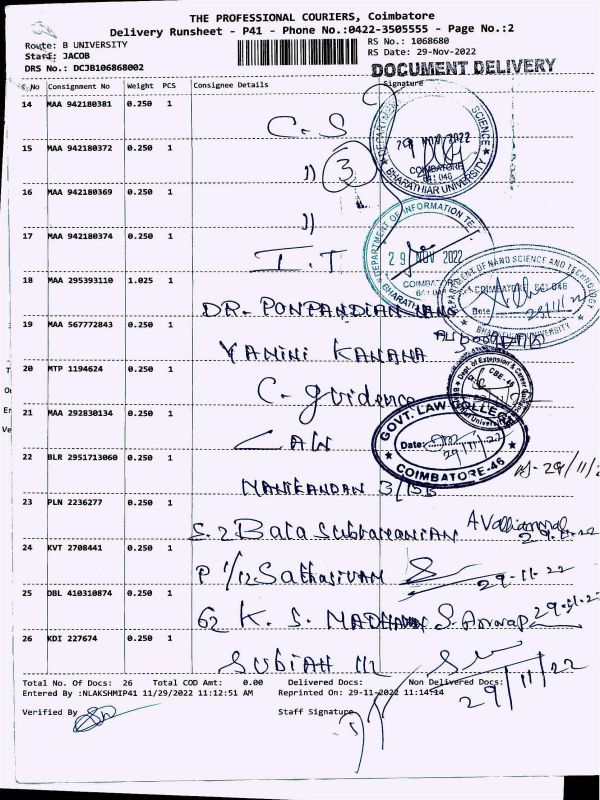 THE PROFESSIONAL COURIERS, Coimbatore
Delivery Runsheet - P41 - Phone No.:0422-3505555 - Page No.:2
Route: B UNIVERSITY
RS No.: 1068680
Staff: JACOB
RS Date: 29-Nov-2022
DRS No.: DCJB106868002
DOCUMENT DELIVERY
S.No Consignment No Weight PCS Consignee Details Signature
14 MAA 942180381 0.250 1
C.S
DEPARTMENT SCIENCE
NOV 2022
COIMBATORE
641 046
BHARATHIAR UNIVERSITY
15 MAA 942180372 0.250 1
)) 3
16 MAA 942180369 0.250 1
))
17 MAA 942180374 0.250 1
I.T
DEPARTMENT OF INFORMATION
29 NOV 2022
18 MAA 295393110 1.025 1
DR. PONPANDIAN
DEPARTMENT OF NANO SCIENCE AND TECHNOLOGY
COIMBATORE 641 046
Date
BHARATHIAR UNIVERSITY
19 MAA 567772843 0.250 1
YANINI KANANA
20 MTP 1194624 0.250 1
C. guidence
Dept. of Extension & Career
CBE-46
21 MAA 292830134 0.250 1
LAW
GOVT. LAW COLLEGE
Date: 29/11/22
COIMBATORE-46
22 BLR 2951713060 0.250 1
MANIKANDAN
23 PLN 2236277 0.250 1
Bala Subramanian
24 KVT 2708441 0.250 1
P 1/12 Sathasivam
29-11-22
25 DBL 410310874 0.250 1
62 K. S.
26 KDI 227674 0.250 1
SUBIAH
29/11/22
Total No. Of Docs: 26 Total COD Amt: 0.00 Delivered Docs: Non Delivered Docs:
Entered By :NLAKSHMIP41 11/29/2022 11:12:51 AM Reprinted On: 29-11-2022 11:14:14
Verified By
Staff Signature